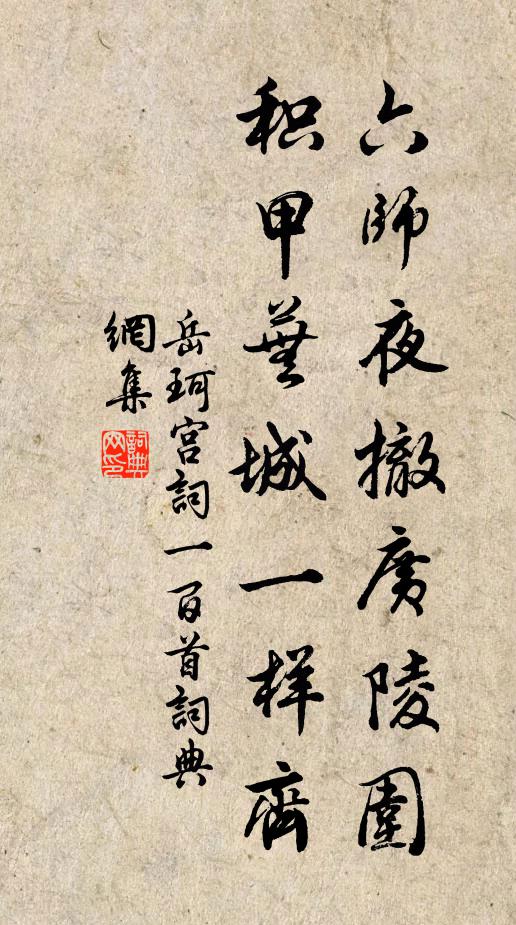 六師夜撤廣陵圍
积甲蕪城一样齊
岳珂宫詞一百首詞典
網集
詞典网印